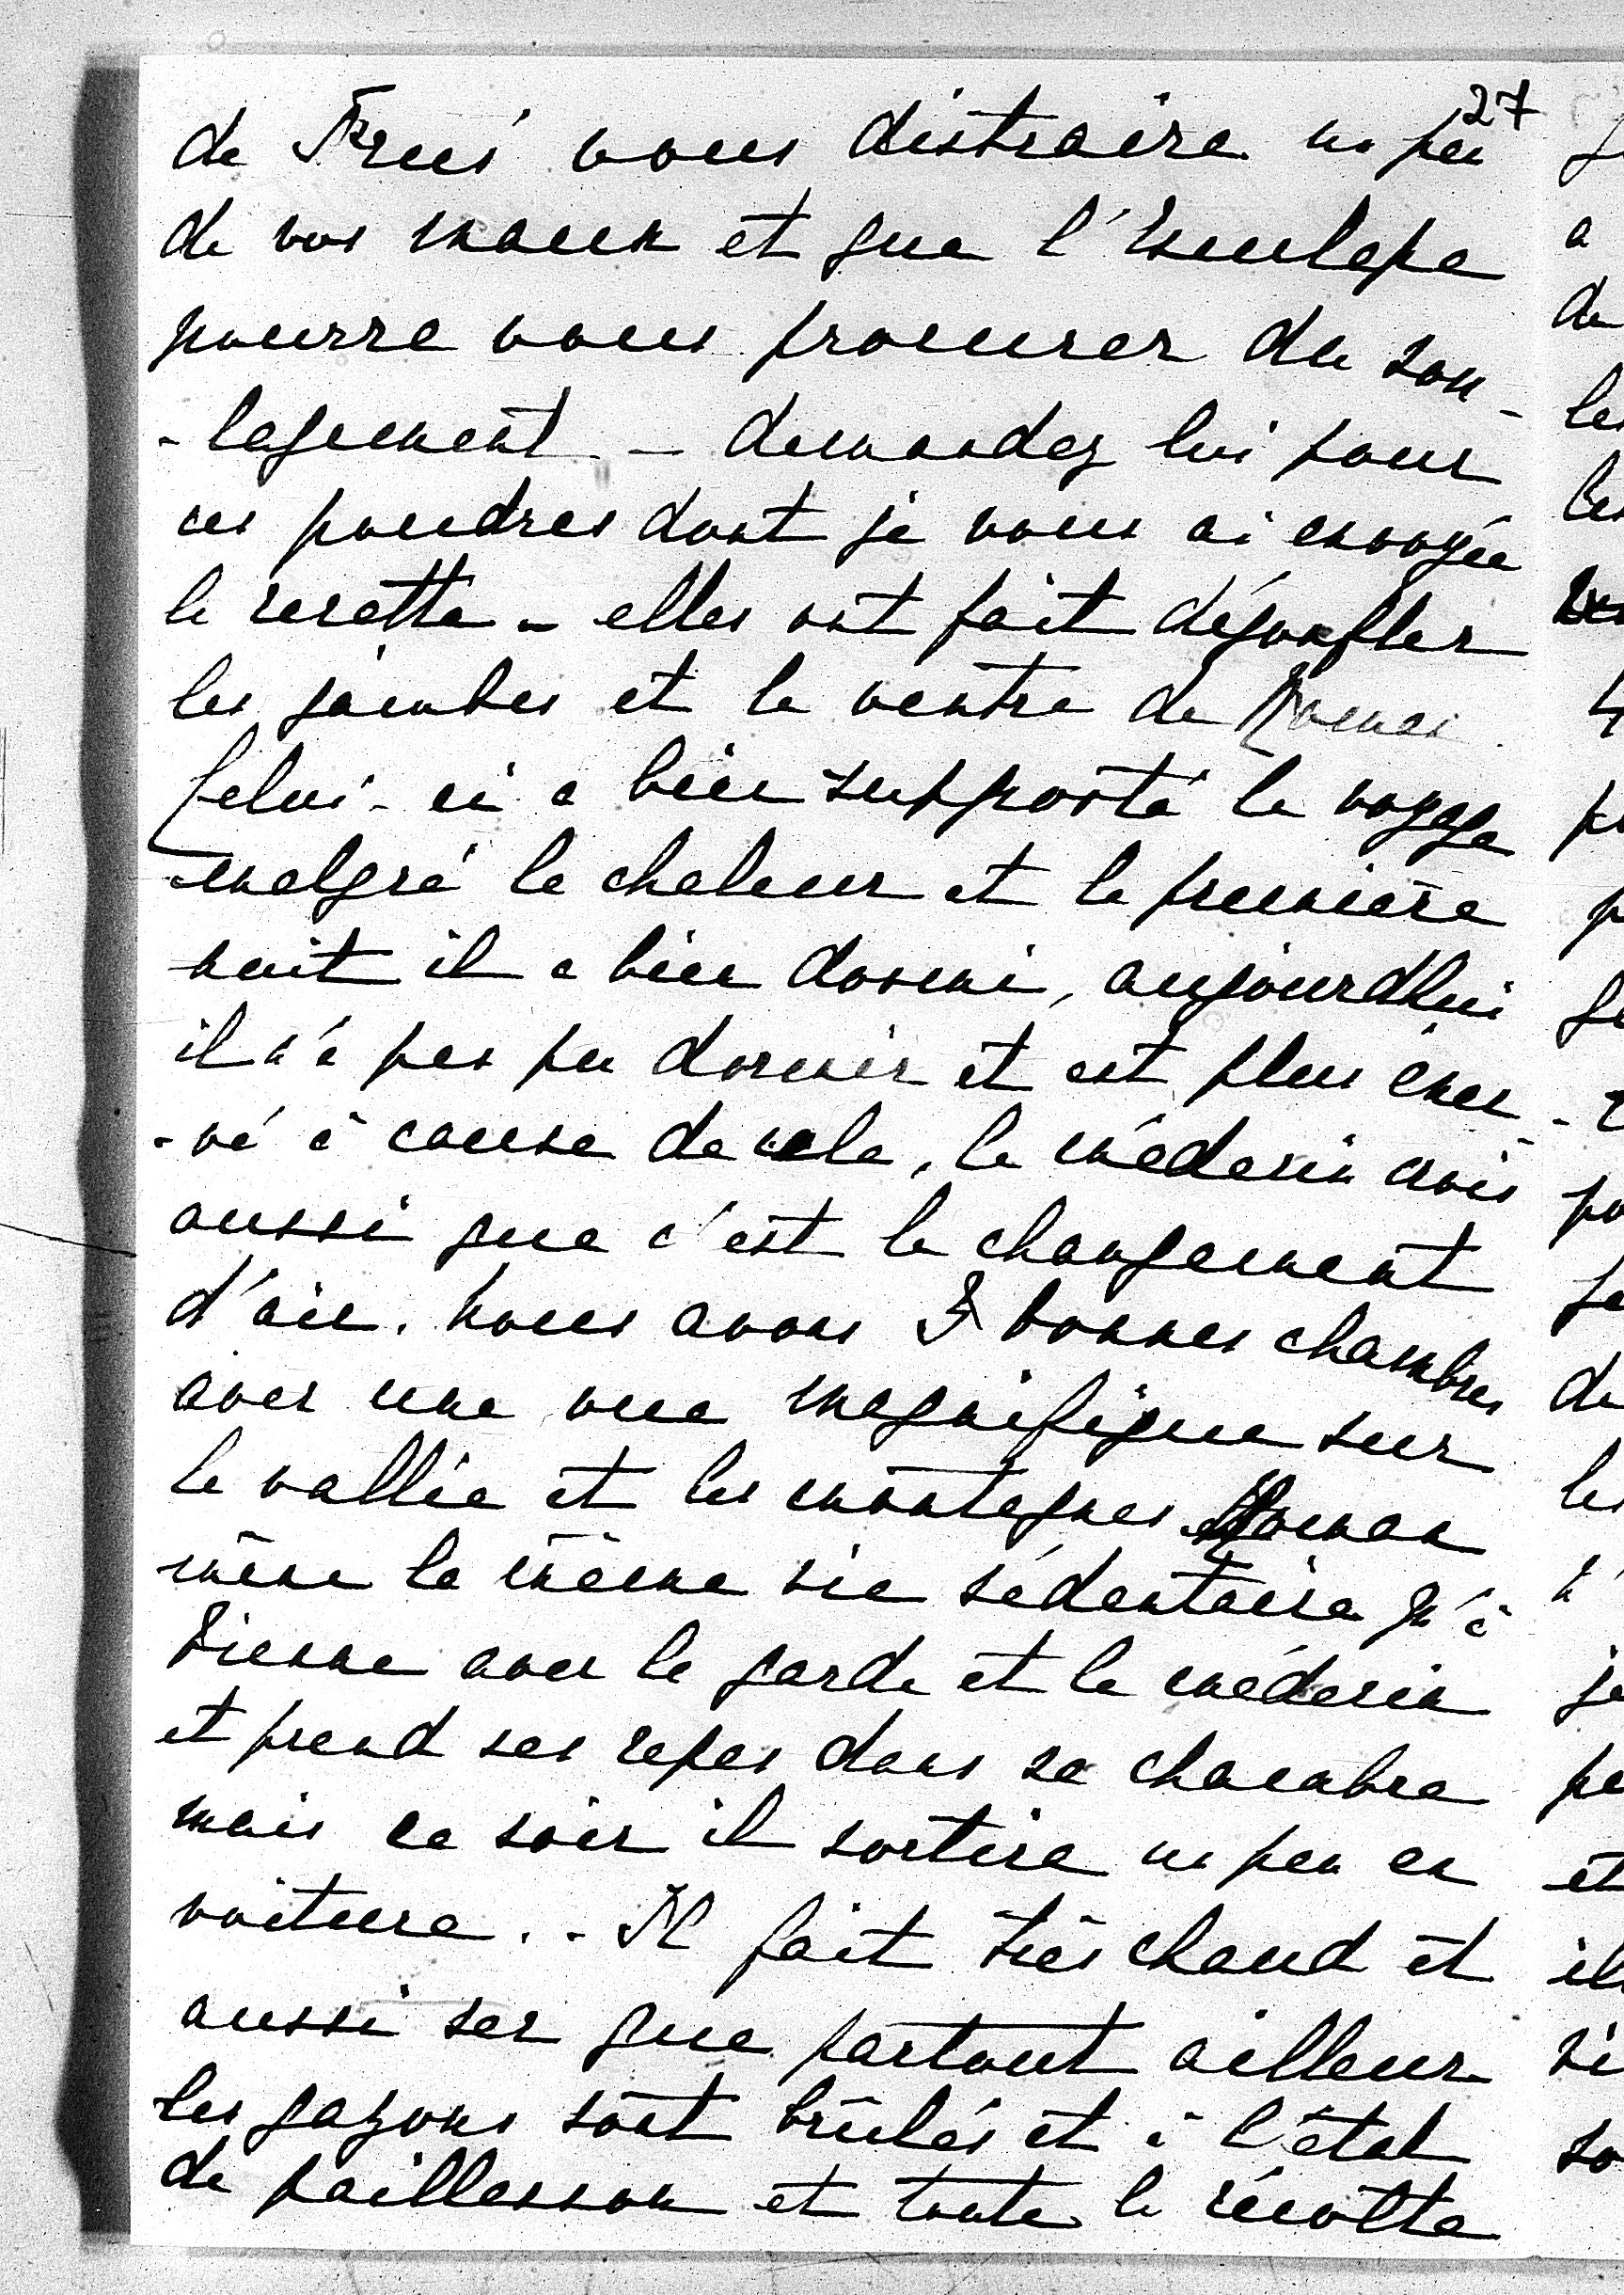 27
de Kreus vous distraire un peu
de vos maux et que l'Esculape
pourra vous procurer du sou-
-lagement - demandez lui pour
ces poudres dont je vous ai envoyée
la recette - elles ont fait dégonfler
les jambes et le ventre de Roman.
Celui-ci a bien supporté le voyage
malgré la chaleur et la première
nuit il a bien dormi, aujourdhui
il n'a pas pu dormir et est plus éner-
-vé à cause de cela, le médecin crois
aussi que c'est le changement
d'air. Nous avons 3 bonnes chambres
avec une vue magnifique sur
la vallée et les montagnes. Roman
mène la même vie sédentaire qu'à
Vienne avec le garde et le médecin
et prend ses repas dans sa chambre
mais ce soir il sortira un peu en
voiture. - Il fait très chaud et
aussi sec que partout ailleur
les gazons sont brûlés et à l'état
de paillasson et toute la récolte